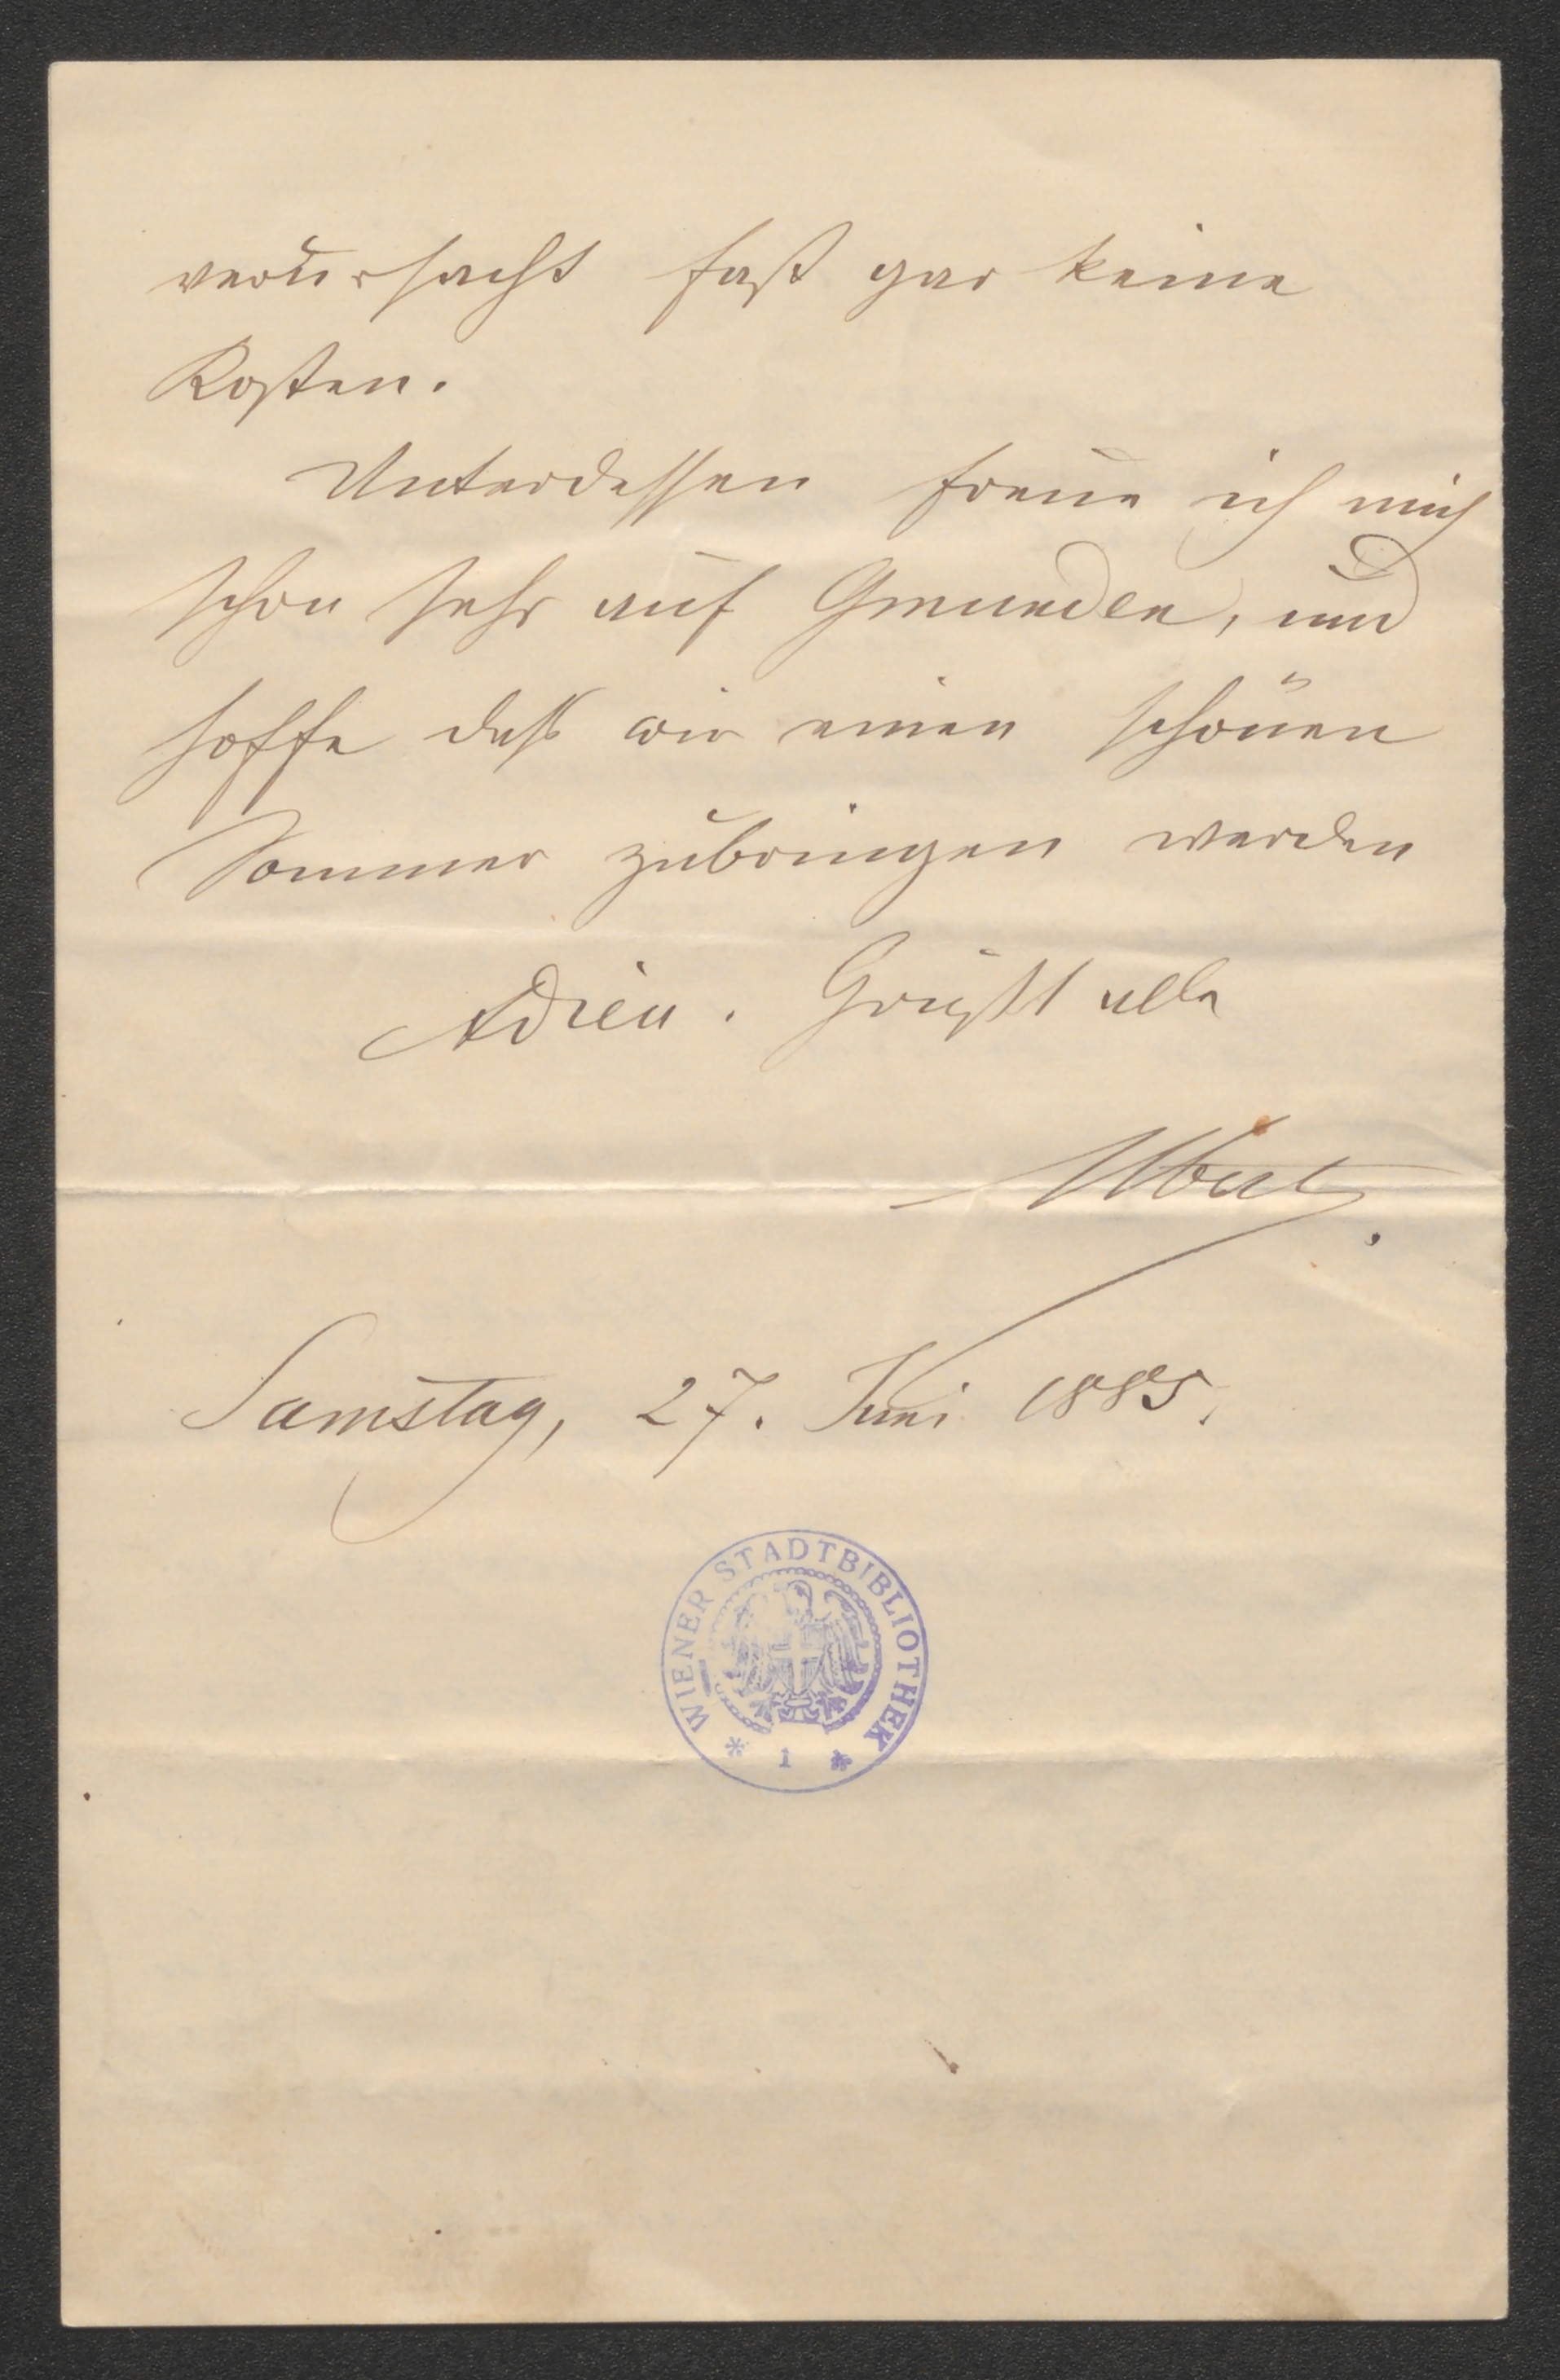 verursacht fast gar keine
Kosten.
Unterdessen freue ich mich
schon sehr auf Gmunden, und
hoffe daß wir einen schönen
Sommer zubringen werden
Adieu. Grüßt alle
Albert.
Samstag, 27. Juni 1885.
WIENER STADTBIBLIOTHEK
* 1 *